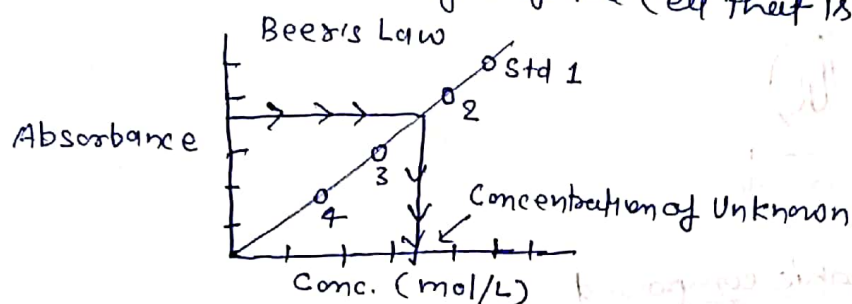 (eq that is
Beer's Law
Std 1
2
Absorbance
3
4
Concentration of Unknown
Conc. (mol/L)